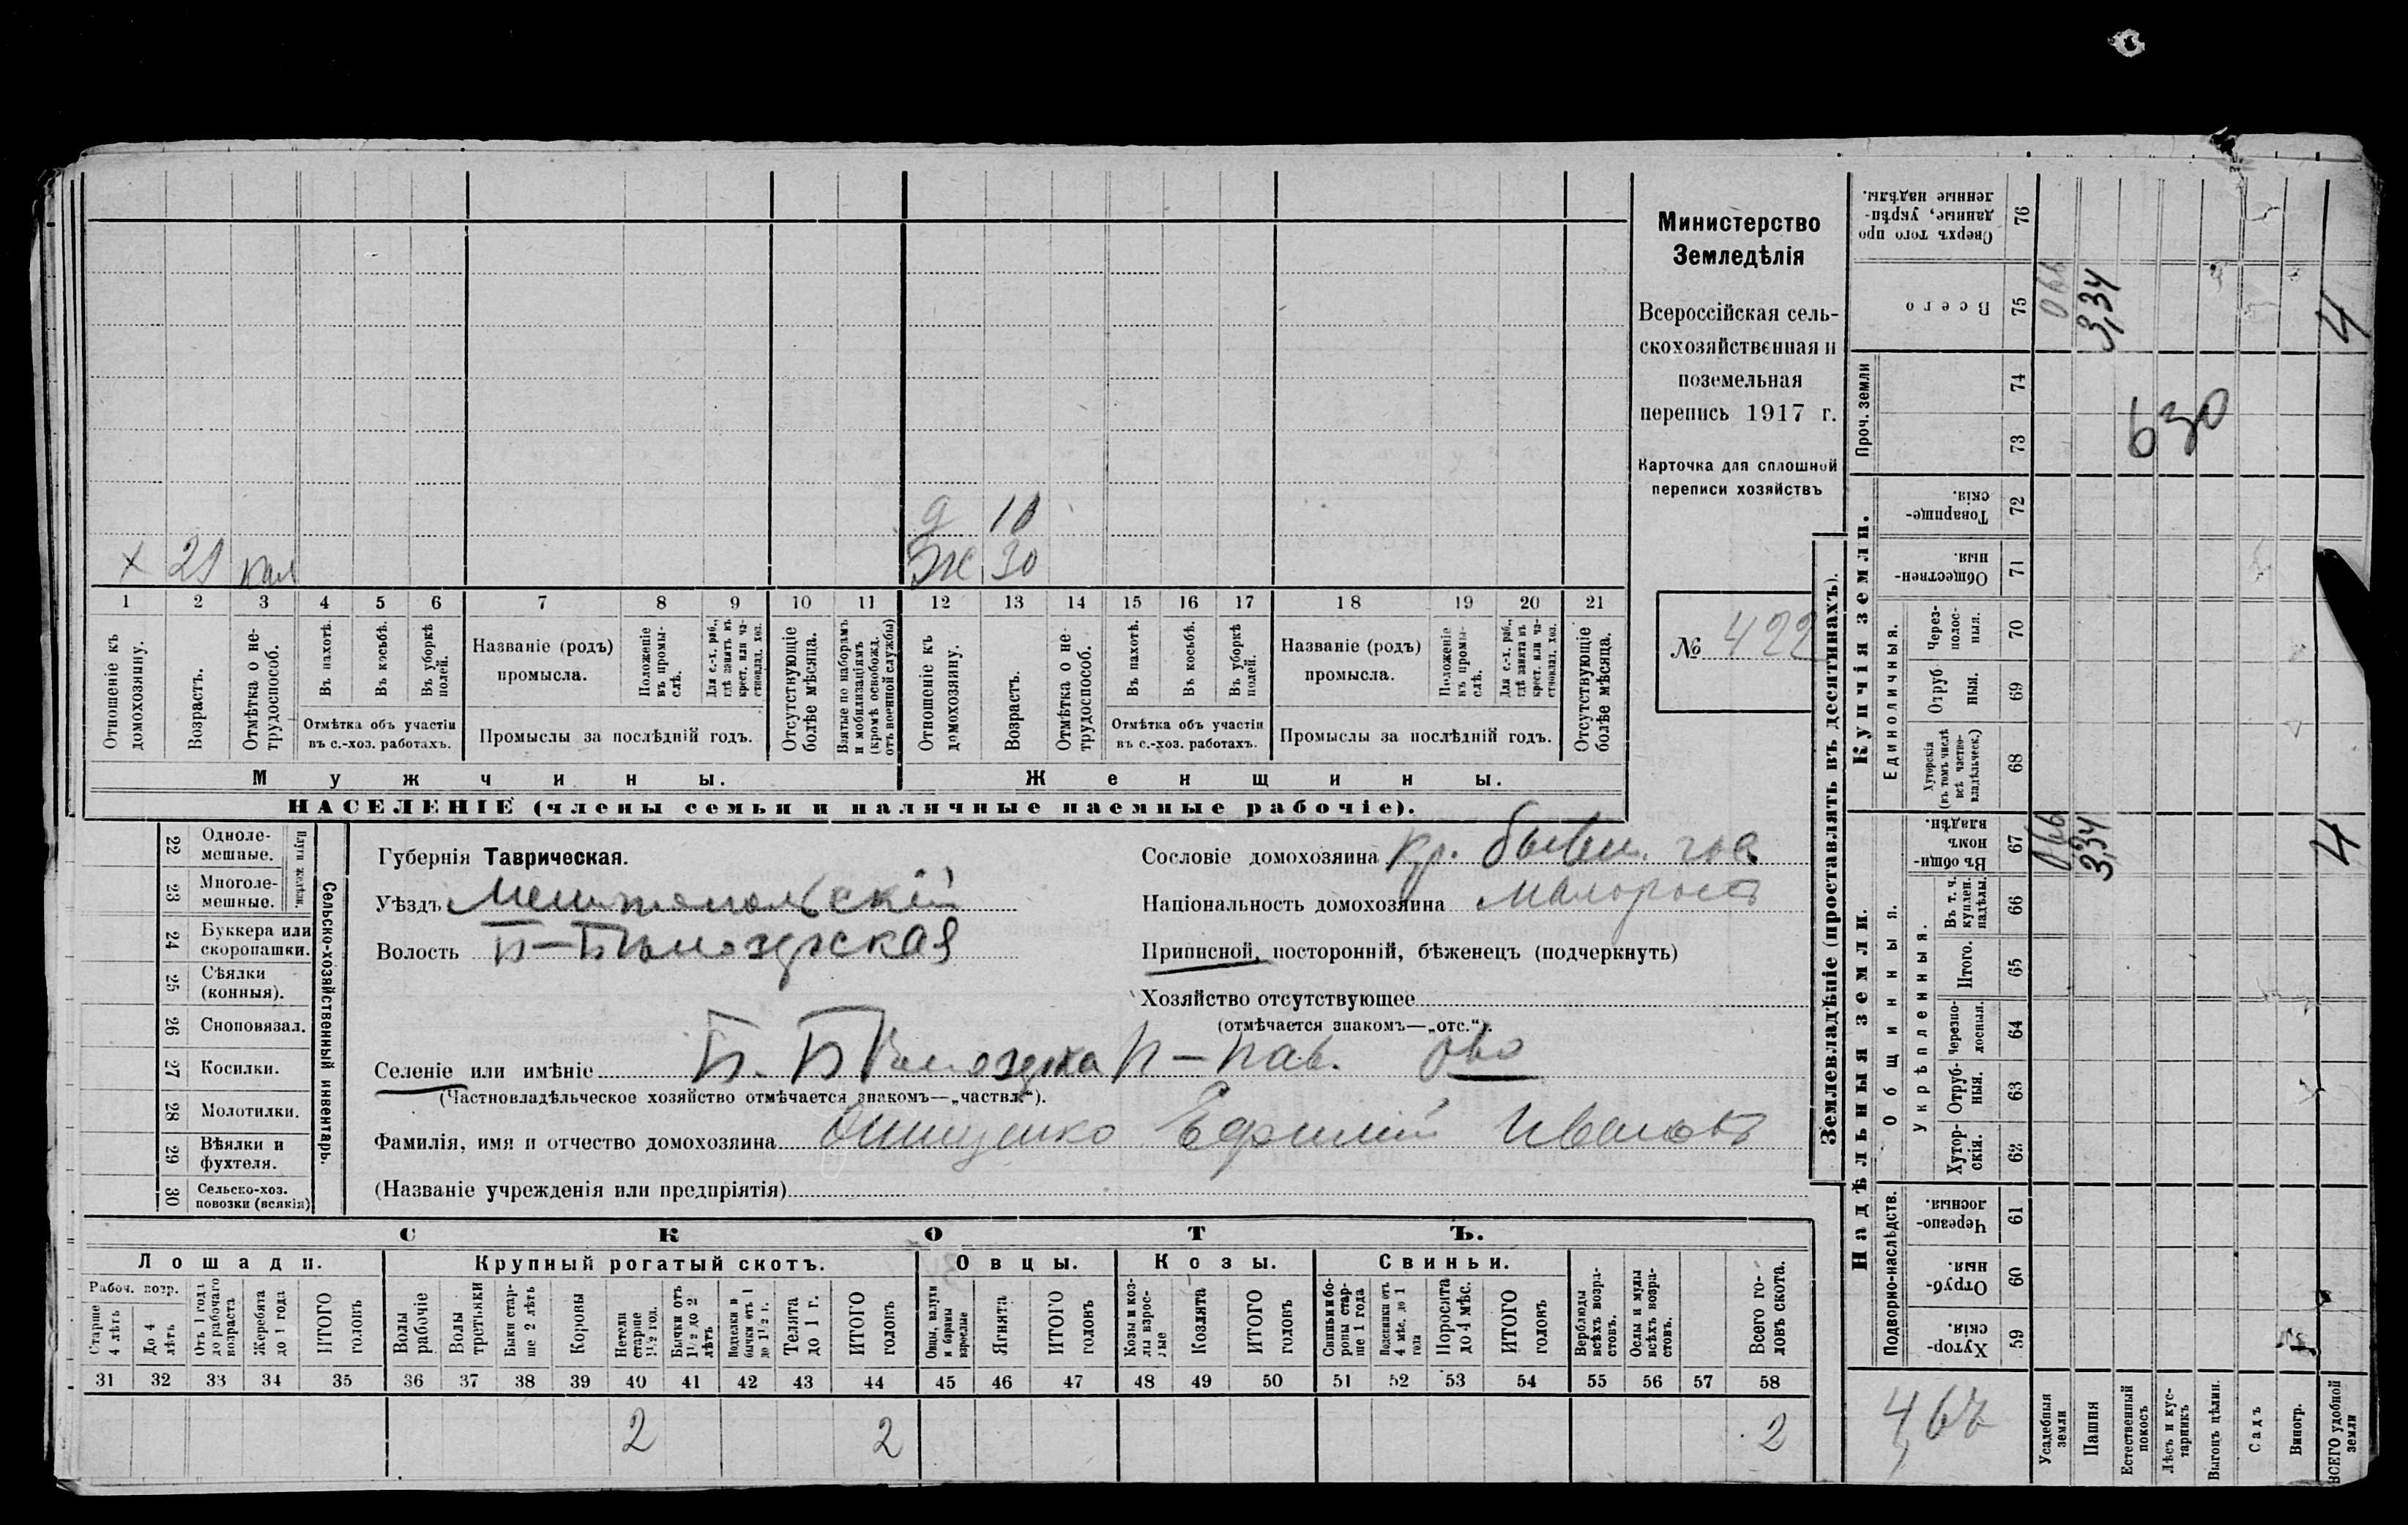 Министерство
Земледѣлія
Всероссійская сель-
скохозяйственная и
поземельная
перепись 1917 г.
Карточка для сплошной
переписи хозяйствъ
№ 422
д 10
х 29 кал
Ж 30
1 2 3 4 5 6 7 8 9 10 11 12 13 14 15 16 17 18 19 20 21
Отношеніе къ домохозяину.
Возрастъ.
Отмѣтка о не-трудоспособ.
Въ пахотѣ.
Въ косьбѣ.
Въ уборкѣ полей.
Отмѣтка объ участіи
въ с.-хоз. работахъ.
Названіе (родъ)
промысла.
Положеніе въ промы-слѣ.
Для с.-х. раб., гдѣ занятъ въ крест. или ча-стновлад. хоз.
Промыслы за послѣдній годъ.
Отсутствующіе болѣе мѣсяца.
Взятые по наборамъ и мобилизаціямъ (кромѣ освобожд. отъ военной службы)
Отношеніе къ домохозяину.
Возрастъ.
Отмѣтка о не-трудоспособ.
Въ пахотѣ.
Въ косьбѣ.
Въ уборкѣ полей.
Отмѣтка объ участіи
въ с.-хоз. работахъ.
Названіе (родъ)
промысла.
Положеніе въ промы-слѣ.
Для с.-х. раб., гдѣ занята въ крест. или ча-стновлад. хоз.
Промыслы за послѣдній годъ.
Отсутствующіе болѣе мѣсяца.
Мужчины.
Женщины.
НАСЕЛЕНІЕ (члены семьи и наличные наемные рабочіе).
22 Одноле-мешные.
23 Многоле-мешные.
Плуги желѣзн.
24 Буккера или скоропашки.
25 Сѣялки (конныя).
26 Сноповязал.
27 Косилки.
28 Молотилки.
29 Вѣялки и фухтеля.
30 Сельско-хоз. повозки (всякія)
Сельско-хозяйственный инвентарь.
Губернія Таврическая.
Уѣздъ Мелитопольскій
Волость Б-Бѣлозерская
Сословіе домохозяина Кр. бывш. гос
Національность домохозяина малороссъ
Приписной, посторонній, бѣженецъ (подчеркнуть)
Хозяйство отсутствующее
(отмѣчается знакомъ—„отс.“).
Селеніе или имѣніе Б. Бѣлозерка П-пав. ово
(Частновладѣльческое хозяйство отмѣчается знакомъ—„частвл.“).
Фамилія, имя и отчество домохозяина Онищенко Ефимій Ивановъ
(Названіе учрежденія или предпріятія)
СКОТЪ.
Лошади.
Крупный рогатый скотъ.
Овцы.
Козы.
Свиньи.
Рабоч. возр.
Старше 4 лѣтъ
До 4 лѣтъ
Отъ 1 года до рабочаго возраста
Жеребята до 1 года
ИТОГО головъ
Волы рабочіе
Волы третьяки
Быки стар-ше 2 лѣтъ
Коровы
Нетели старше 1½ год.
Бычки отъ 1½ до 2 лѣтъ
Подтелки и бычки отъ 1 до 1½ г.
Телята до 1 г.
ИТОГО головъ
Овцы, валухи и бараны взрослые
Ягнята
ИТОГО головъ
Козы и коз-лы взрос-лые
Козлята
ИТОГО головъ
Свиньи и бо-ровы стар-ше 1 года
Подсвинки отъ 4 мѣс. до 1 года
Поросята до 4 мѣс.
ИТОГО головъ
Верблюды всѣхъ возра-стовъ.
Ослы и мулы всѣхъ возра-стовъ.
Всего го-ловъ скота.
31 32 33 34 35 36 37 38 39 40 41 42 43 44 45 46 47 48 49 50 51 52 53 54 55 56 57 58
2 2 2
Землевладѣніе (проставлять въ десятинахъ).
Сверхъ того про данные, укрѣп-ленные надѣлы. 76
Всего 75 066 3,34 4
Проч. земли 74 73
630
Купчія земли.
Товарище-скія. 72
Обществен-ныя. 71
Единоличныя.
Через-полос-ныя. 70
Отруб ныя. 69
Хуторскія (въ томъ числѣ всѣ частно-владѣльческ.) 68
Надѣльныя земли.
Общинныя.
Въ общин-номъ владѣн. 67 066 3,34 4
Укрѣпленныя.
Въ т. ч. куплен. надѣлы. 66
Итого. 65
Черезпо-лосныя. 64
Отруб-ныя. 63
Хутор-скія. 62
Подворно-наслѣдств.
Черезпо-лосныя. 61
Отруб-ныя. 60
Хутор-скія. 59
4,67
Усадебныя земли
Пашня
Естественный покосъ
Лѣсъ и кус-тарникъ
Выгонъ цѣлин.
Садъ
Виногр.
ВСЕГО удобной земли